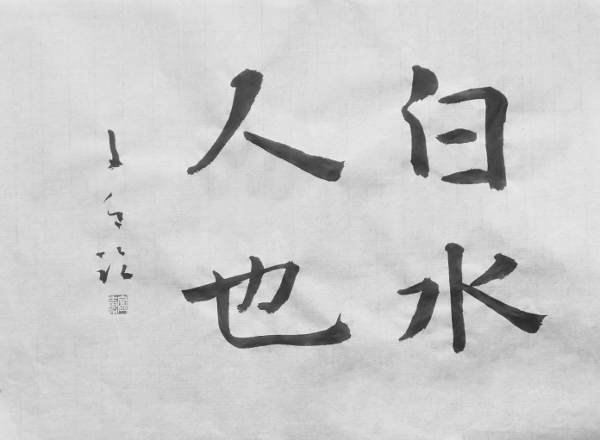 白水
人也